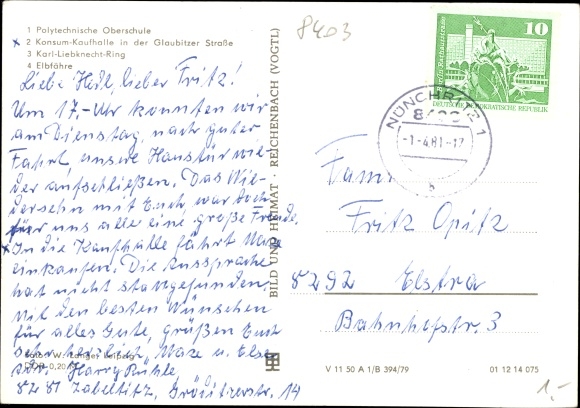 1 Polytechnische Oberschule
x 2 Konsum-Kaufhalle in der Glaubitzer Straße
3 Karl-Liebknecht-Ring
4 Elbfähre
Liebe Heil, lieber Fritz!
Um 17,-Uhr konnten wir
am Dienstag, nach guter
Fahrt, unsere Haustür wie-
der aufschließen. Das Wie-
dersehn mit Euch war doch
für uns alle eine große Freude.
x In die Kaufhalle fährt Maxe
einkaufen. Die Aussprache
hat nicht stattgefunden.
Mit den besten Wünschen
für alles Gute, grüßen Euch
sehr herzlich Maxe u. Else
Foto: W. Langer Leipzig
DDR 0,20 M
Harry Rühle
8281 Zabeltitz, Gröditzerstr. 14
BILD UND HEIMAT · REICHENBACH (VOGTL)
8403
10
Berlin, Rathausstraße
DEUTSCHE DEMOKRATISCHE REPUBLIK
NÜNCHRITZ 1
-1.-4.81-17
b
Fam.
Fritz Opitz
8292 Elstra
Bahnhofstr. 3
V 11 50 A 1/B 394/79
01 12 14 075
1,-